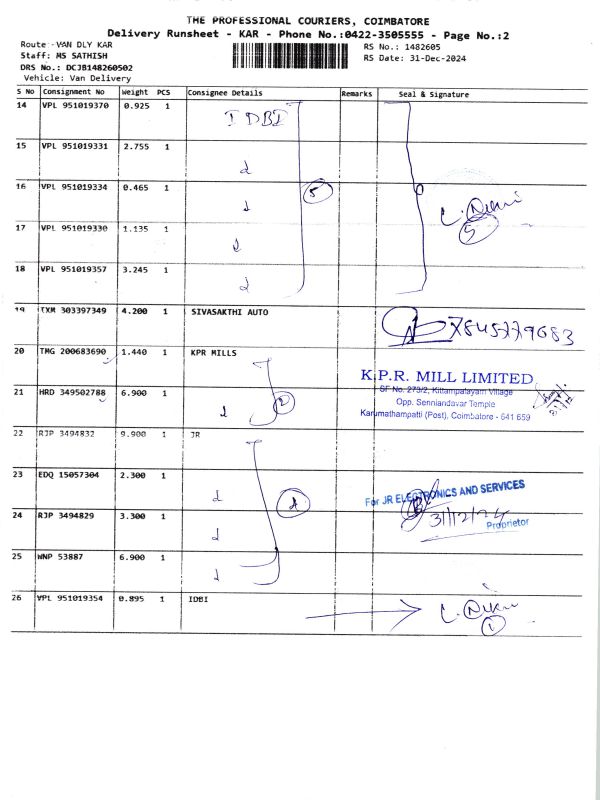 THE PROFESSIONAL COURIERS, COIMBATORE
Delivery Runsheet - KAR - Phone No.:0422-3505555 - Page No.:2
Route - VAN DLY KAR
RS No.: 1482605
Staff: MS SATHISH
RS Date: 31-Dec-2024
DRS No.: DCJB148260502
Vehicle: Van Delivery
S No Consignment No Weight PCS Consignee Details Remarks Seal & Signature
14 VPL 951019370 0.925 1 IDBI
15 VPL 951019331 2.755 1
16 VPL 951019334 0.465 1 5
17 VPL 951019330 1.135 1 5
18 VPL 951019357 3.245 1
19 TXM 303397349 4.200 1 SIVASAKTHI AUTO
20 TMG 200683690 1.440 1 KPR MILLS
K.P.R. MILL LIMITED
21 HRD 349502788 6.900 1 2
SF No. 273/2, Kittampalayam Village
Opp. Senniandavar Temple
Karumathampatti (Post), Coimbatore - 641 659
22 RJP 3494832 9.900 1 JR
23 EDQ 15057304 2.300 1
For JR ELECTRONICS AND SERVICES
24 RJP 3494829 3.300 1
31/12/24
Proprietor
25 WNP 53887 6.900 1
26 VPL 951019354 0.895 1 IDBI
1